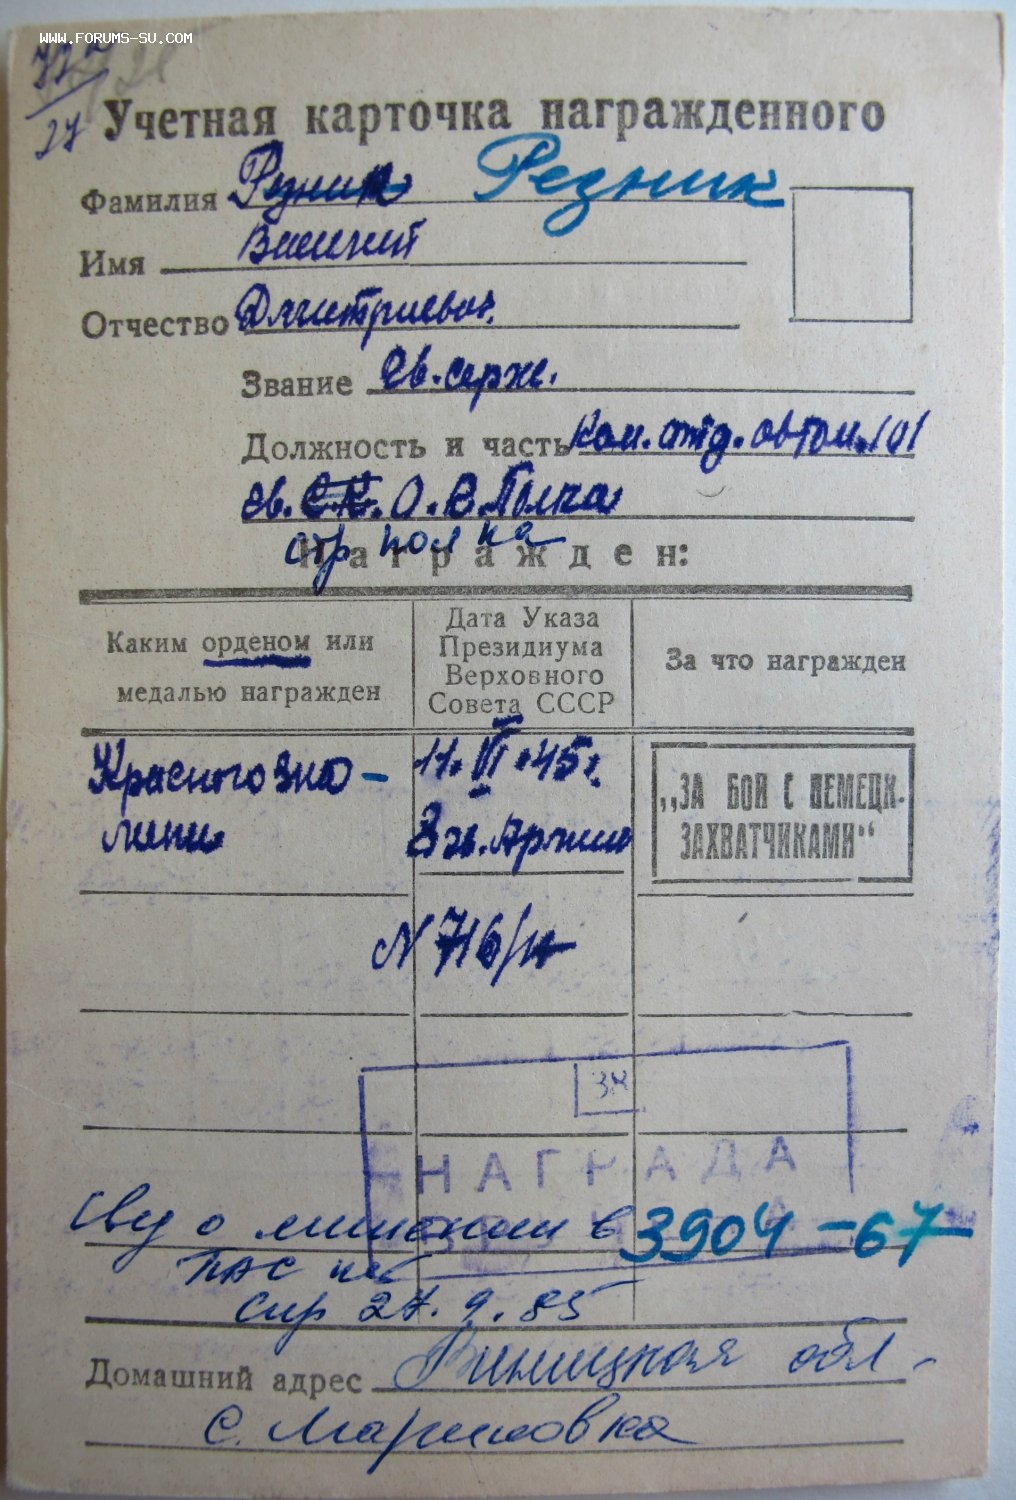 WWW.FORUMS-SU.COM
27
Учетная карточка награжденного
Фамилия Резник Резник
Имя Василий
Отчество Дмитриевич
Звание гв. серж.
Должность и часть Ком. отд. автом. 101
гв. С.К. О. С. Полка
стр полка
Награжден:
Каким орденом или медалью награжден
Дата Указа Президиума Верховного Совета СССР
За что награжден
Красного Зна-
мени
11.VI.45г.
8 гв. Армии
„ЗА БОИ С НЕМЕЦК.
ЗАХВАТЧИКАМИ“
N 716/н
НАГРАДА
о 3904-67
27.9.85
Домашний адрес Виницкая обл-
с. Мариновка